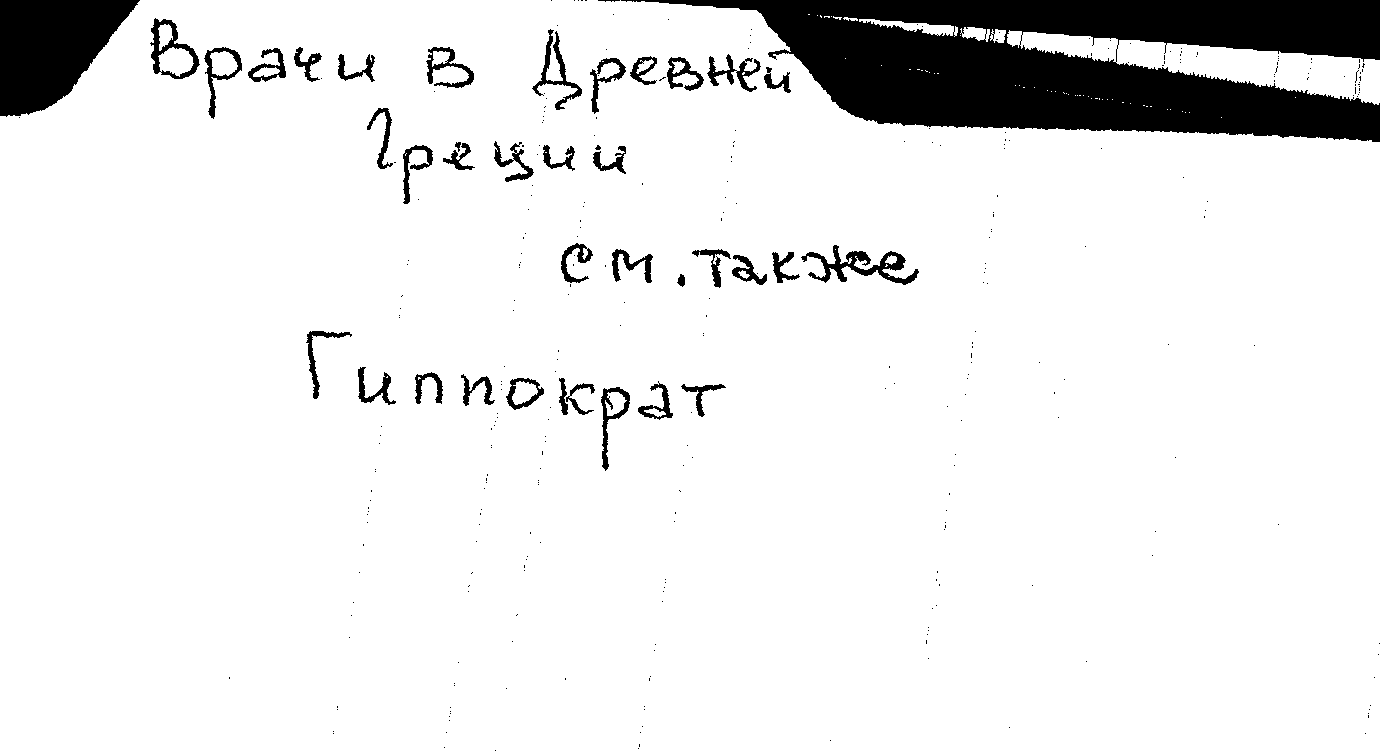 Врачи в Древней
Греции
см. также
Гиппократ